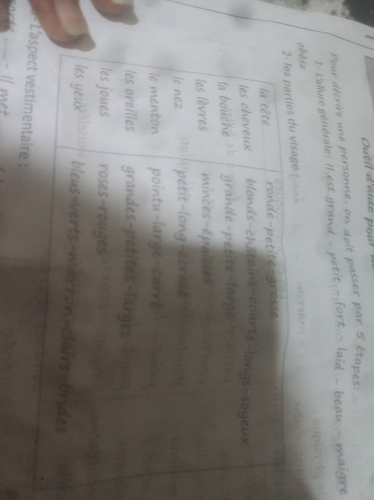 Outil d'aide pour
Pour décrire une personne, on doit passer par 5 étapes:
1- L'allure générale: Il est grand - petit - fort - laid - beau - maigre
obèse
2- les parties du visage
la tête ronde-petite-grosse
les cheveux blonds-châtains-courts-longs-soyeux
la bouche grande-petite-large
les lèvres minces-épaisses
le nez petit-long
le menton pointu-large-carré
les oreilles grandes-petites-larges
les joues roses-rouges
les yeux bleus-verts-marron-clairs-bridés
L'aspect vestimentaire :
- Il met